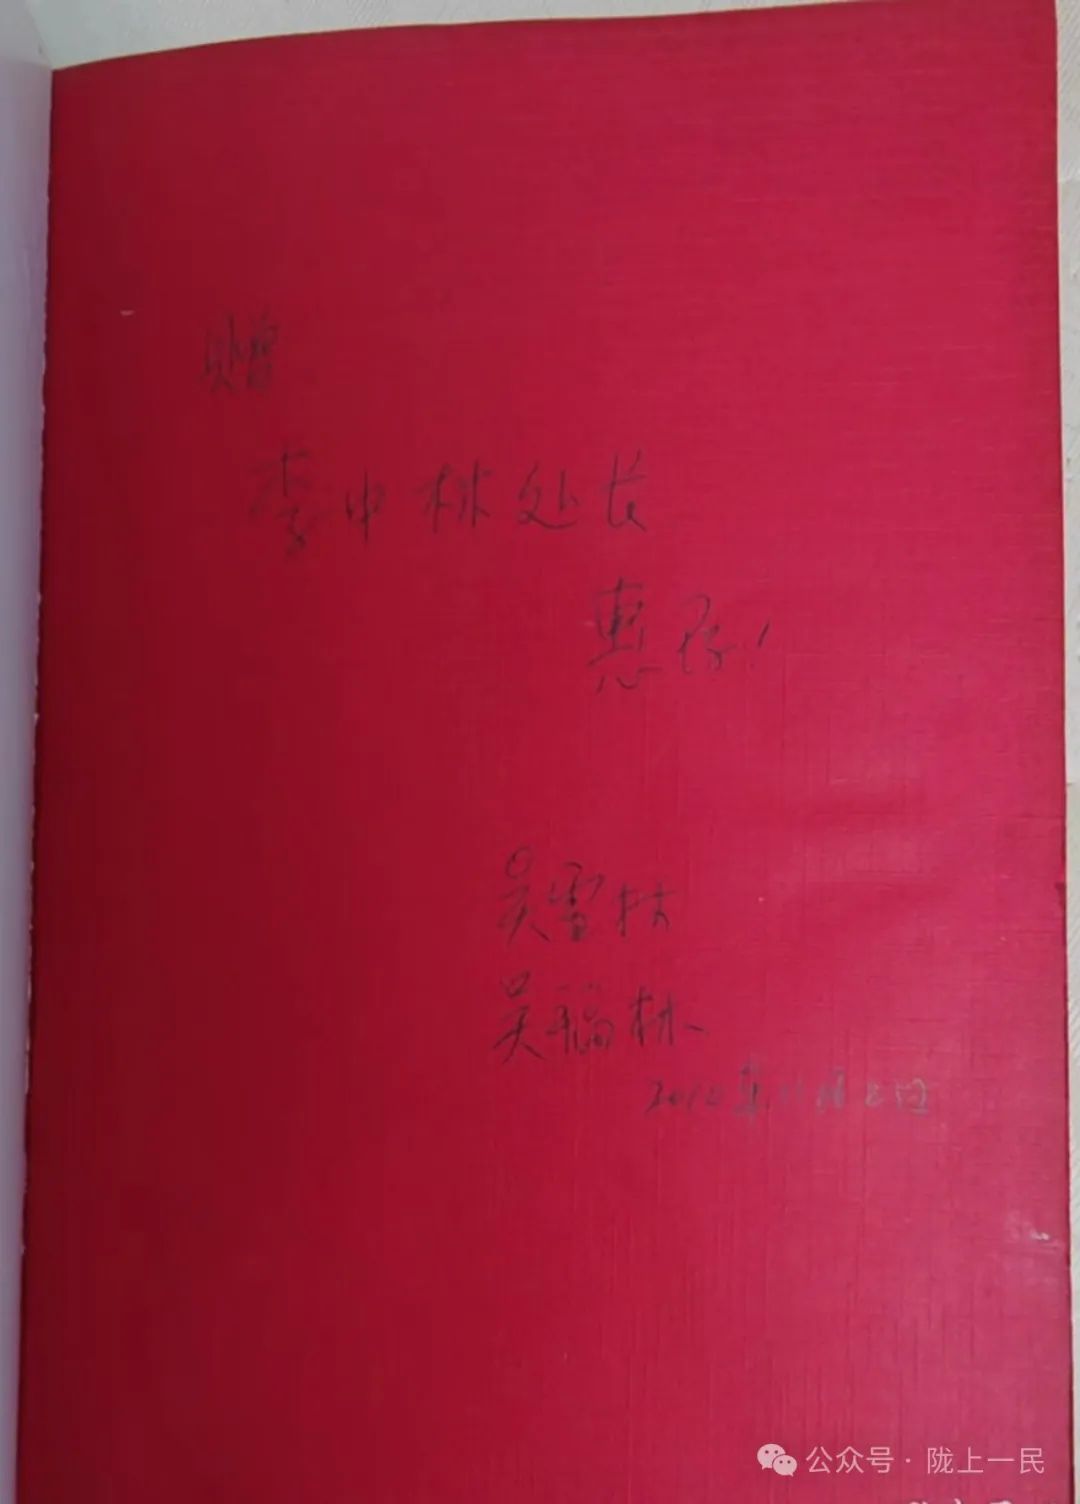 赠
李中林处长
惠存!
吴雪林
吴福林
2010年11月2日
公众号·陇上一民